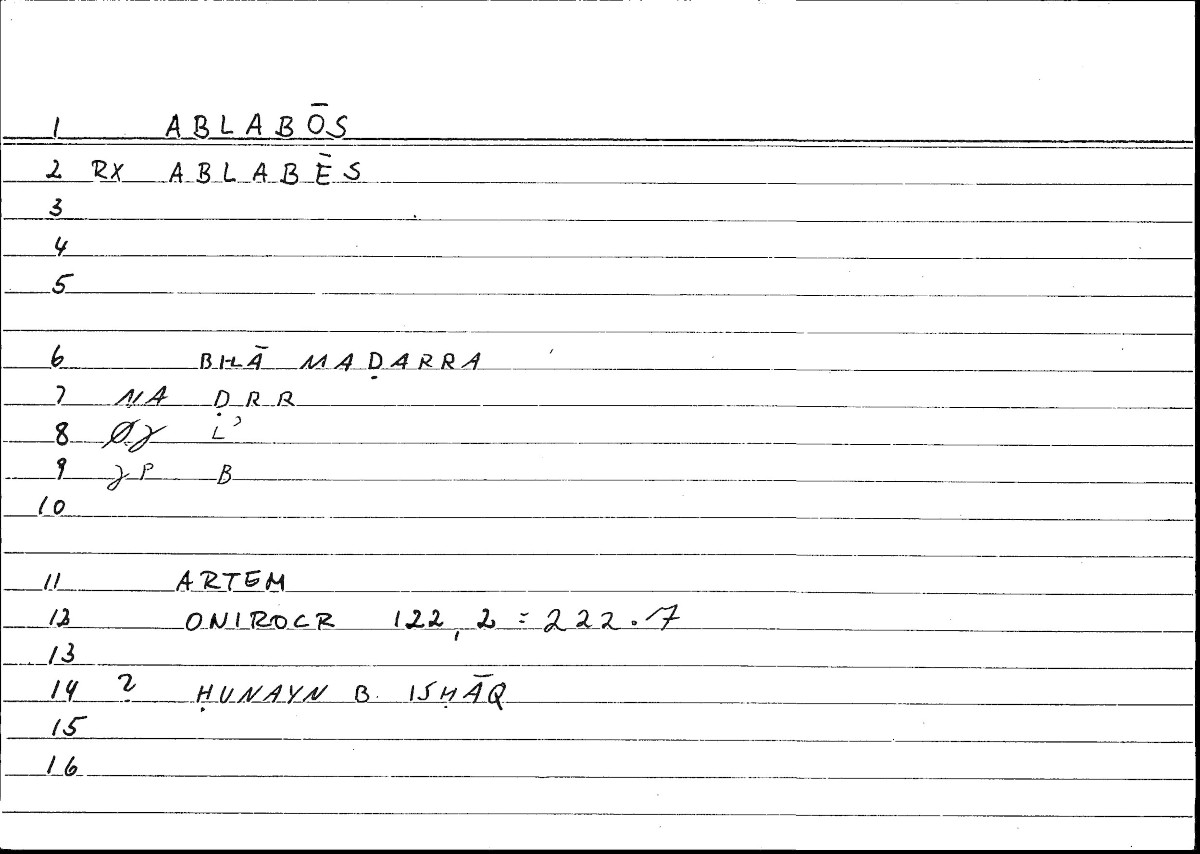 1 ABLABŌS
2 RX ABLABĒS
3
4
5
6 BILĀ MAḌARRA
7 NA ḌRR
8 L'
9 P B
10
11 ARTEM
12 ONIROCR 122,2 = 222.17
13
14 ? ḤUNAYN B. ISḤĀQ
15
16